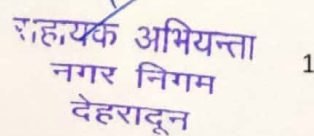 सहायक अभियन्ता
नगर निगम
देहरादून
1